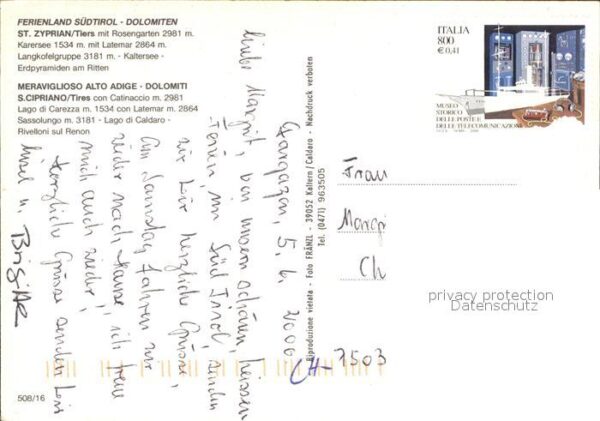 FERIENLAND SÜDTIROL - DOLOMITEN
ST. ZYPRIAN/Tiers mit Rosengarten 2981 m.
Karersee 1534 m. mit Latemar 2864 m.
Langkofelgruppe 3181 m. - Kalterersee -
Erdpyramiden am Ritten
MERAVIGLIOSO ALTO ADIGE - DOLOMITI
S.CIPRIANO/Tires con Catinaccio m. 2981
Lago di Carezza m. 1534 con Latemar m. 2864
Sassolungo m. 3181 - Lago di Caldaro -
Rivelloni sul Renon
Gargazon, 5. 6. 2000
Liebe Margrit, von unsern schönen, heissen
Ferien im Süd Tirol, senden
wir Dir herzliche Grüsse,
Am Samstag fahren wir
wieder nach Hause, ich freu
mich auch wieder,
herzliche Grüsse senden Dir
u. Brigitte
Riproduzione vietata - Foto FRÄNZL - 39052 Kaltern/Caldaro - Nachdruck verboten
Tel. (0471) 963505
ITALIA
800
€ 0,41
MUSEO
STORICO
DELLE POSTE E
DELLE TELECOMUNICAZIONI
Frau
Margi
Ch
CH-7503
privacy protection
Datenschutz
508/16